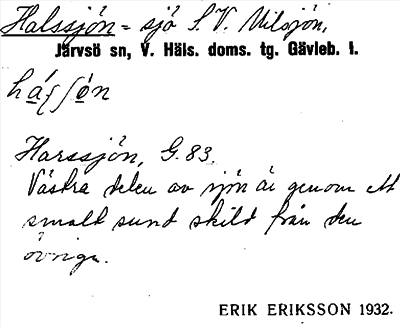 Halssjön = sjö S.V. Nilsjön,
Järvsö sn, V. Häls. doms. tg. Gävleb. l.
Harssjön, G. 83.
Västra delen av sjön är genom ett
smalt sund skild från den
övriga.
ERIK ERIKSSON 1932.